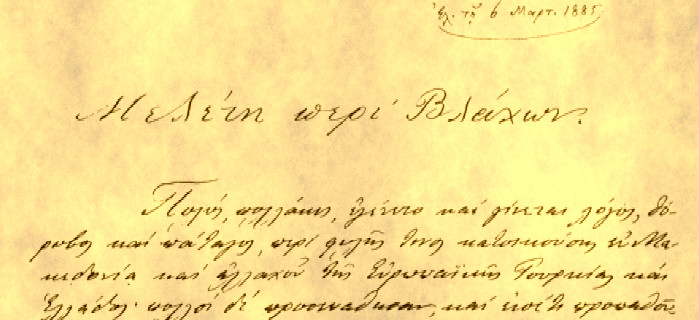 Ἐλ. τῇ 6 Μαρτ. 1885
Μελέτη περὶ Βλάχων.
Πολὺς, πολλάκις, ἐγένετο καὶ γίνεται λόγος, θό-
ρυβος καὶ πάταγος, περὶ φυλῆς τινος κατοικούσης ἐν Μα-
κεδονίᾳ καὶ ἀλλαχοῦ τῆς Εὐρωπαϊκῆς Τουρκίας καὶ
Ἑλλάδος· πολλοὶ δὲ προσεπάθησαν, καὶ προσπαθοῦ-